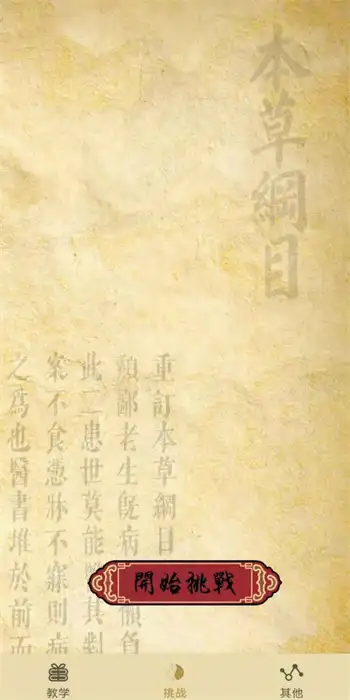 本草綱目
重訂本草綱目
類鄙老生既病
此二患世莫能 其
案不食憑牀不寐則病
之爲也醫書堆於前而
開始挑戰
教学
挑战
其他